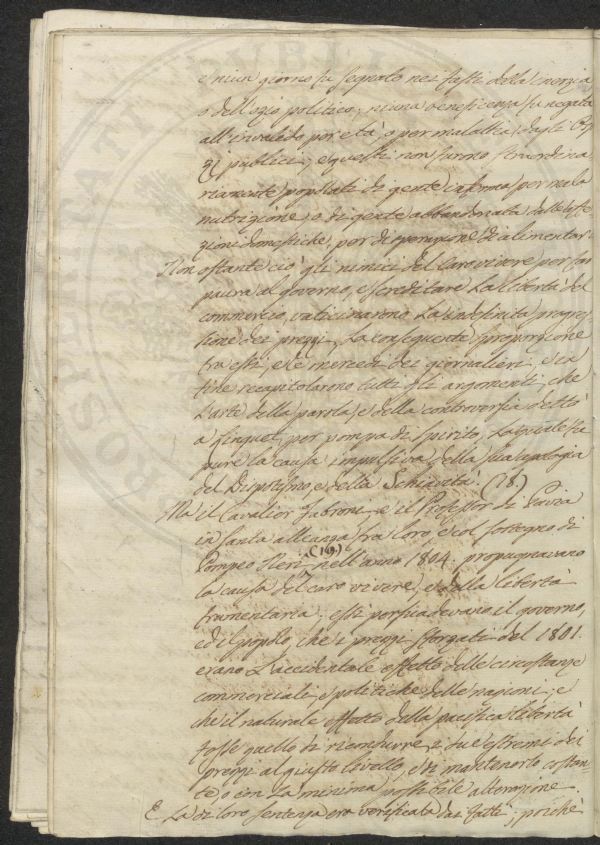 e niun giorno fu segnato nei fasti della inerzia
o dell'ozio politico; niuna beneficenza fu negata
all'invalido per età, o per malattia dagli Ospi
zj publici; e questi non furno straordina
riamente popolati di gente inferma per mala
nutrizione, o di gente abbandonata dalle affe
zioni domestiche, per disperazione di alimentarsi
Non ostante ciò gli nimici del caro vivere per far
paura al governo, e screditare la libertà del
commercio, vaticinarono la indefinita progres
sione dei prezzi, la conseguente sproporzione
tra essi, e le mercedi dei giornalieri, e in
fine recapitolarono tutti gli argomenti, che
l'arte della parola, e della controversia dettò
a Linguet per pompa di spirito, la quale fu
pure la causa impulsiva della sua apologia
del Dispotismo, e della Schiavitù. (18.)
Ma il Cavalier Fabroni, e il Professor di Pavia
in santa alleanza fra loro, e col sostegno di
Pompeo Neri (19) nell'anno 1804. propugnavano
la causa del caro vivere, e della libertà
frumentaria; essi persuadevano il governo,
ed il popolo, che i prezzi sforzati del 1801.
erano l'accidentale effetto delle circostanze
commerciali, e politiche delle nazioni; e
che il naturale effetto della pacifica libertà
fosse quello di ricondurre i due estremi dei
prezzi al giusto livello, e di mantenerlo costan-
te, o con la minima possibile alterazione.
E la di loro sentenza era verificata dai fatti; poichè